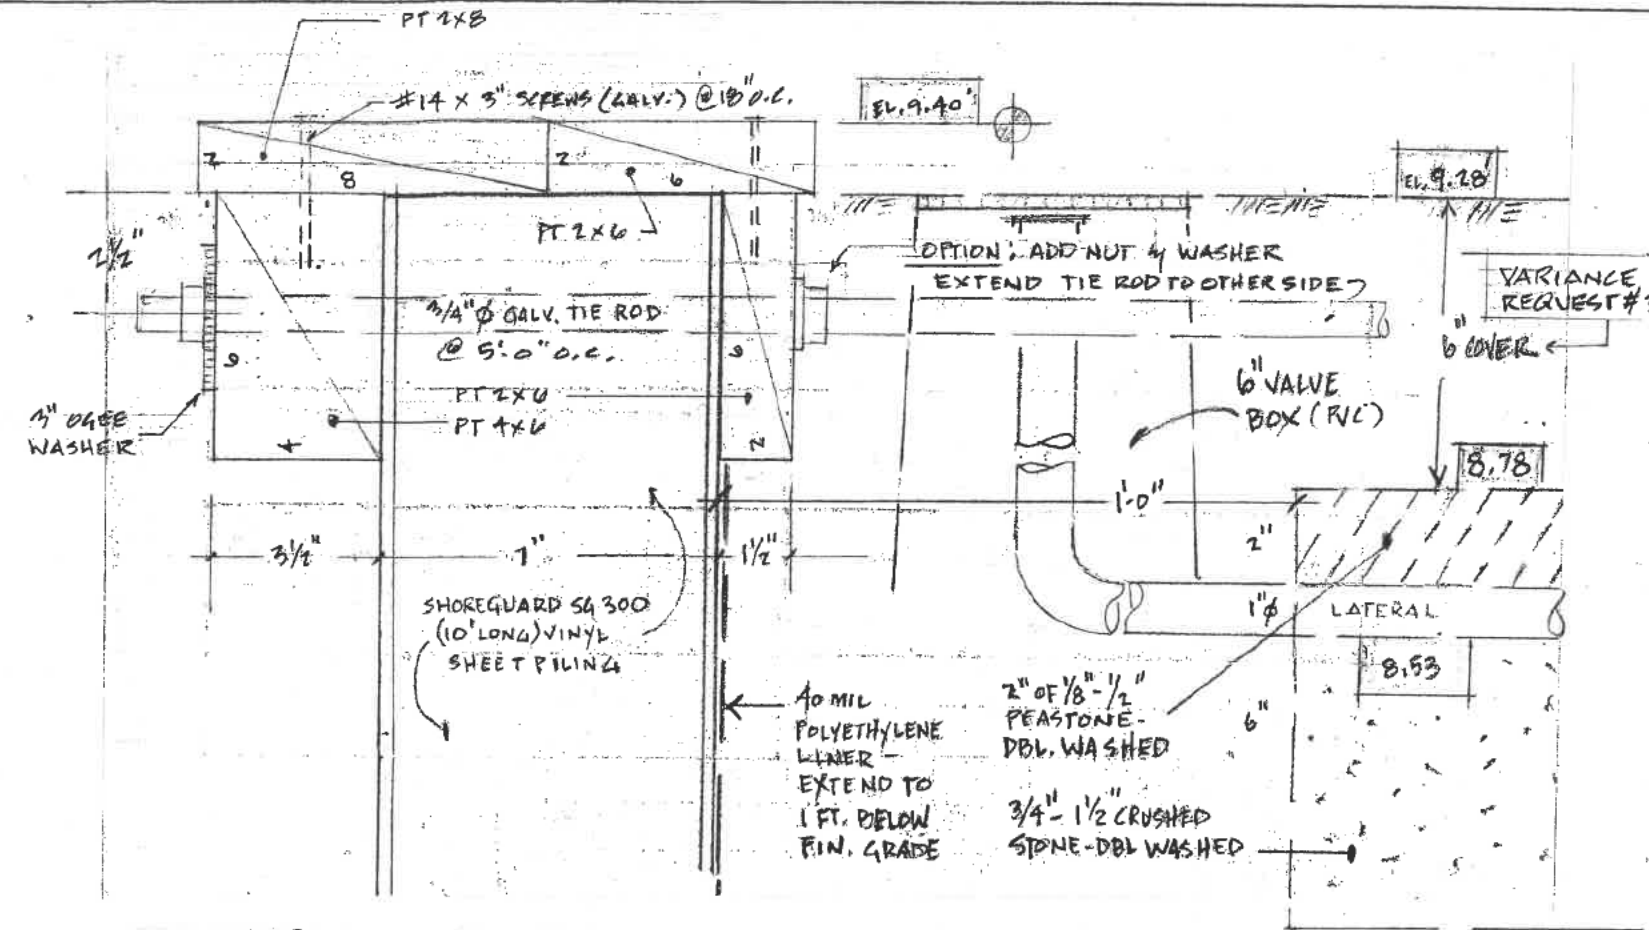 PT 2X8
#14 X 3" SCREWS (GALV.) @ 18" O.C.
EL. 9.40'
EL. 9.28'
2
8
2
6
PT 2X6
2½"
OPTION: ADD NUT & WASHER
EXTEND TIE ROD TO OTHER SIDE
VARIANCE
REQUEST #
3/4" Ø GALV. TIE ROD
@ 5'-0" O.C.
6" COVER
6
6
6" VALVE
BOX (PVC)
PT 2X6
PT 4X6
3" OGEE
WASHER
4
2
8.78
1'-0"
3½"
7"
1½"
2"
SHOREGUARD SG 300
(10' LONG) VINYL
SHEET PILING
1"Ø
LATERAL
8.53
40 MIL
POLYETHYLENE
LINER –
EXTEND TO
1 FT. BELOW
FIN. GRADE
2" OF 1/8"-1/2"
PEASTONE-
DBL. WASHED
6"
3/4"-1½" CRUSHED
STONE-DBL WASHED